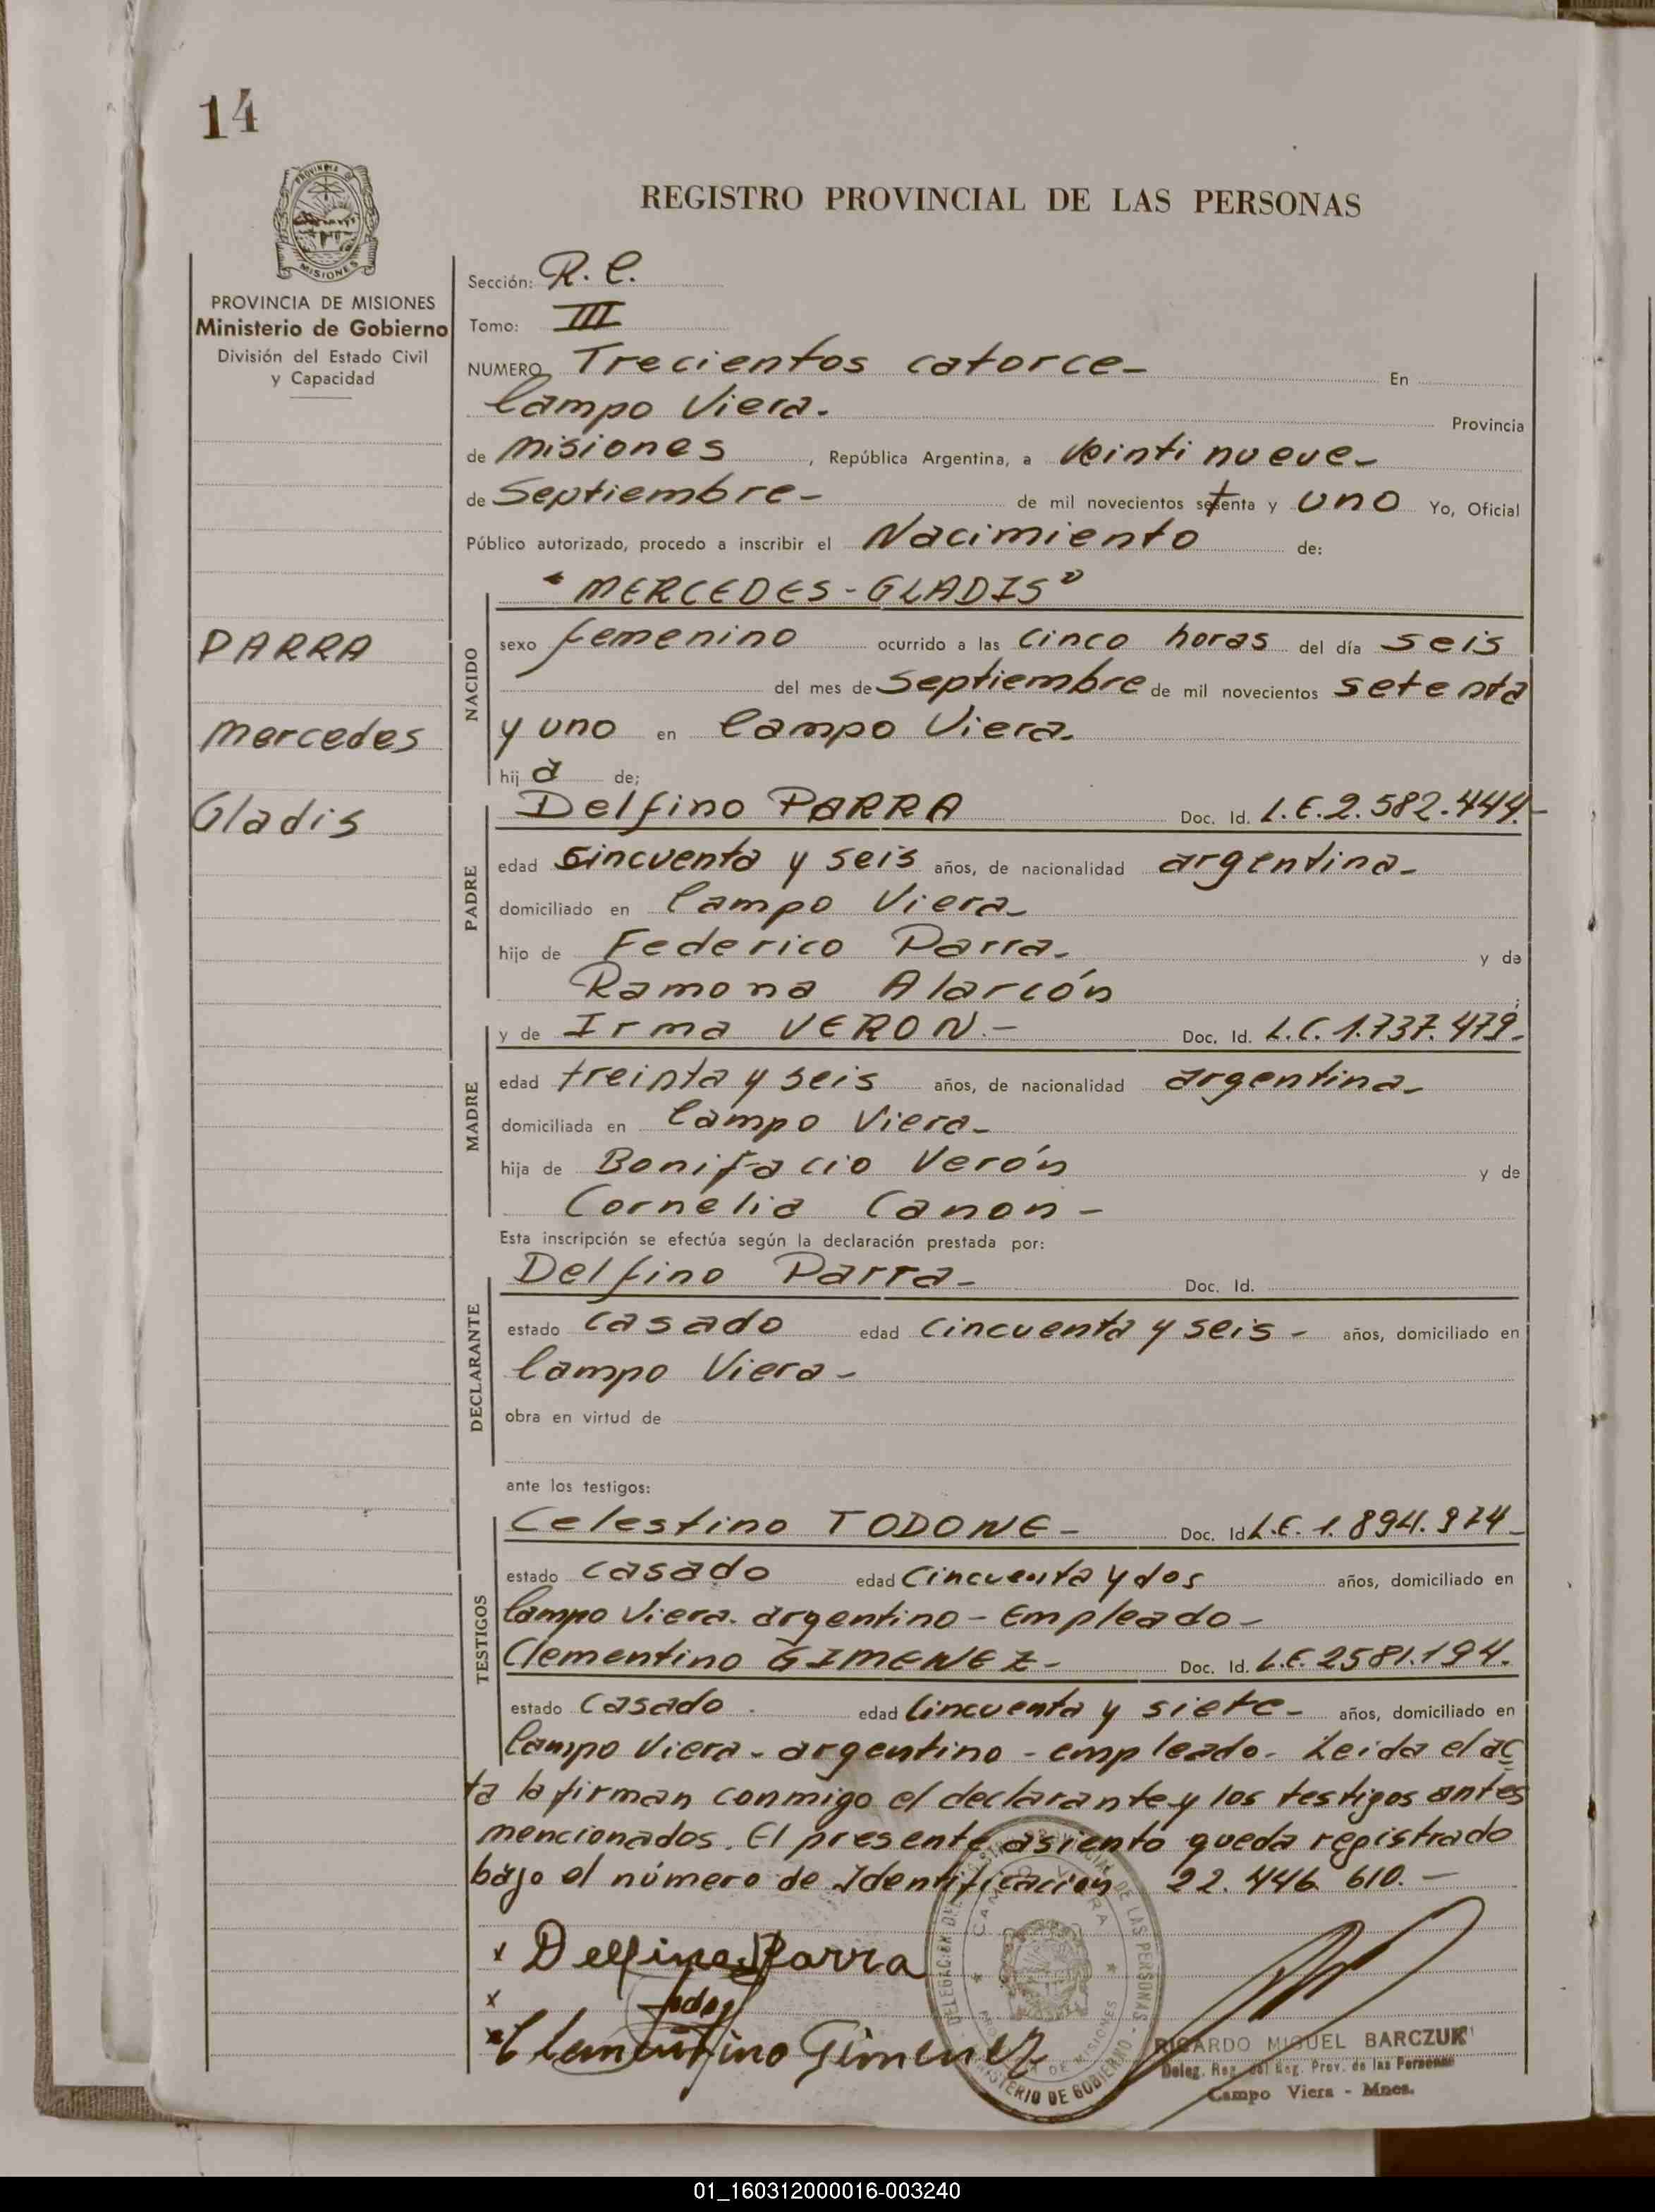 14
PROVINCIA DE MISIONES
MISIONES
PROVINCIA DE MISIONES
Ministerio de Gobierno
División del Estado Civil
y Capacidad
PARRA
Mercedes
Gladis
REGISTRO PROVINCIAL DE LAS PERSONAS
Sección: R. C.
Tomo: III
NUMERO Trecientos catorce- En
Campo Viera. Provincia
de Misiones, República Argentina, a Veinti nueve-
de Septiembre- de mil novecientos setenta y uno Yo, Oficial
Público autorizado, procedo a inscribir el Nacimiento de:
NACIDO
"MERCEDES-GLADIS"
sexo femenino ocurrido a las cinco horas del día seis
del mes de Septiembre de mil novecientos setenta
y uno en Campo Viera.
hij a de;
PADRE
Delfino PARRA Doc. Id. L.E.2.582.444.-
edad Sincuenta y seis años, de nacionalidad argentina-
domiciliado en Campo Viera-
hijo de Federico Parra- y de
Ramona Alarcón ;
MADRE
y de Irma VERON.- Doc. Id. L.C. 1.737.479-
edad treinta y seis años, de nacionalidad argentina-
domiciliada en Campo Viera-
hija de Bonifacio Verón y de
Cornelia Canon-
Esta inscripción se efectúa según la declaración prestada por:
DECLARANTE
Delfino Parra- Doc. Id.
estado casado edad cincuenta y seis- años, domiciliado en
Campo Viera-
obra en virtud de
ante los testigos:
TESTIGOS
Celestino TODONE- Doc. Id L.E. 1.894.974-
estado casado edad Cincuenta y dos años, domiciliado en
Campo Viera. argentino-Empleado-
Clementino GIMENEZ- Doc. Id. L.E. 2581.194.
estado casado. edad Cincuenta y siete- años, domiciliado en
Campo Viera-argentino-empleado. Leida el ac
ta la firman conmigo el declarante y los testigos antes
mencionados. El presente asiento queda registrado
bajo el número de Identificación 22.446.610.-
x Delfino Parra
x
x Clementino Gimenez
DELEGACION
DE LAS PERSONAS
CAMPO VIERA
DE MISIONES
MINISTERIO DE GOBIERNO
RICARDO MIGUEL BARCZUK
Deleg. Reg. del Reg. Prov. de las Personas
Campo Viera - Mnes.
01_160312000016-003240